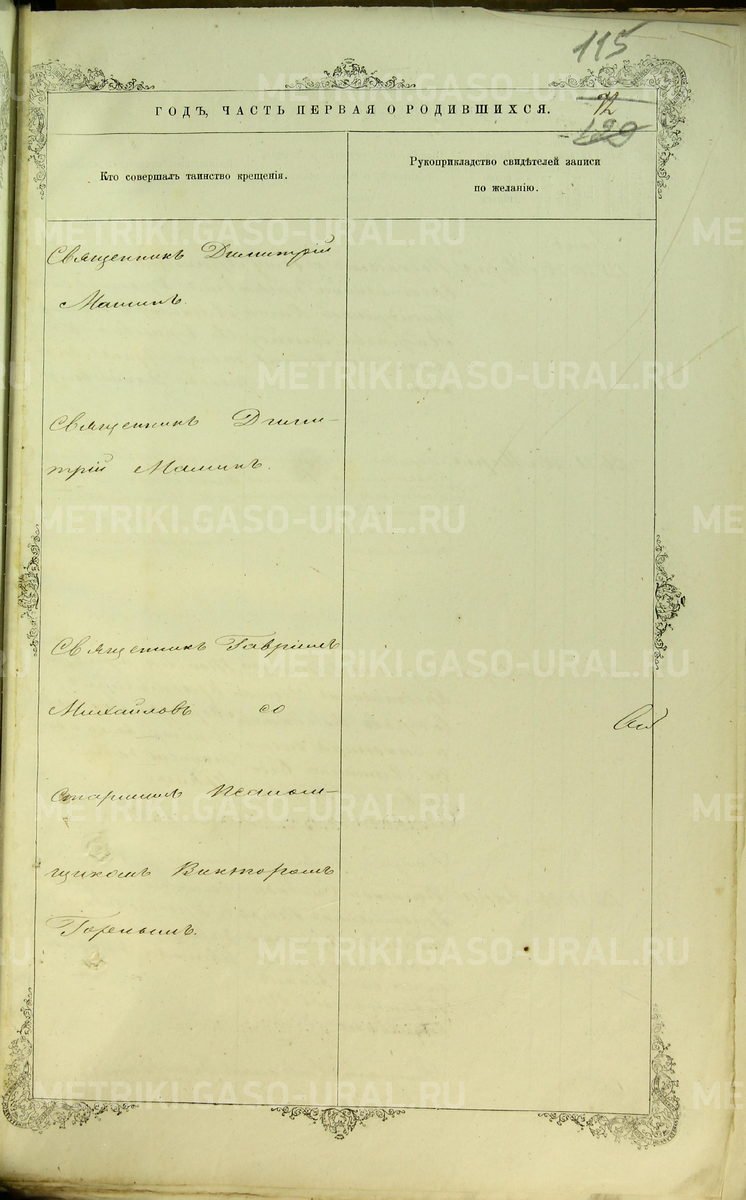 115
ГОДЪ, ЧАСТЬ ПЕРВАЯ О РОДИВШИХСЯ.
72
120
Кто совершалъ таинство крещенія.
Рукоприкладство свидѣтелей записи
по желанію.
Священникъ Димитрій
Маминъ.
Священникъ Дими-
трій Маминъ.
Священникъ Гавріилъ
Михайловъ со
старшимъ псалом-
щикомъ Викторомъ
METRIKI.GASO-URAL.RU